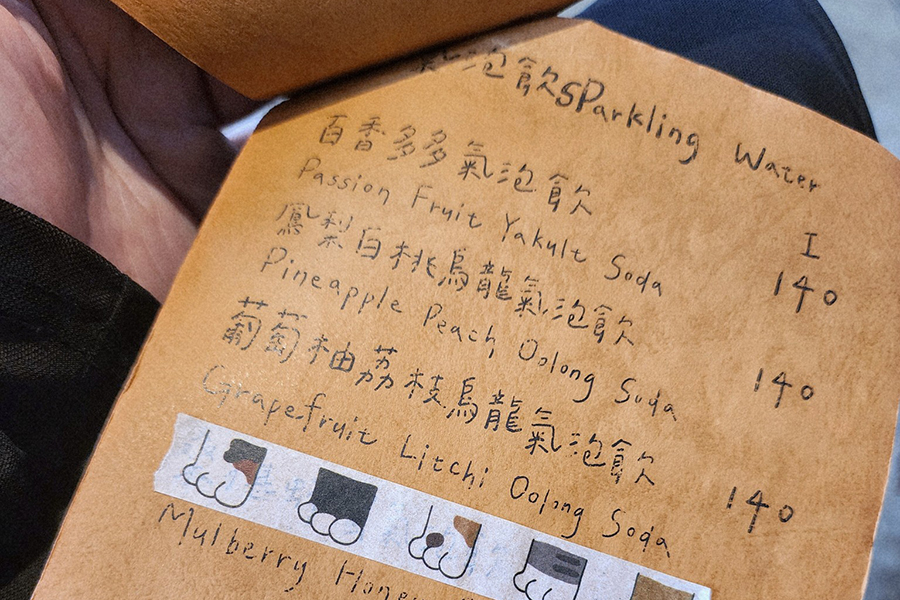 泡飲 SParkling Water
I
百香多多氣泡飲
Passion Fruit Yakult Soda 140
鳳梨白桃烏龍氣泡飲
Pineapple Peach Oolong Soda 140
葡萄柚荔枝烏龍氣泡飲
Grapefruit Litchi Oolong Soda 140
Mulberry Honey